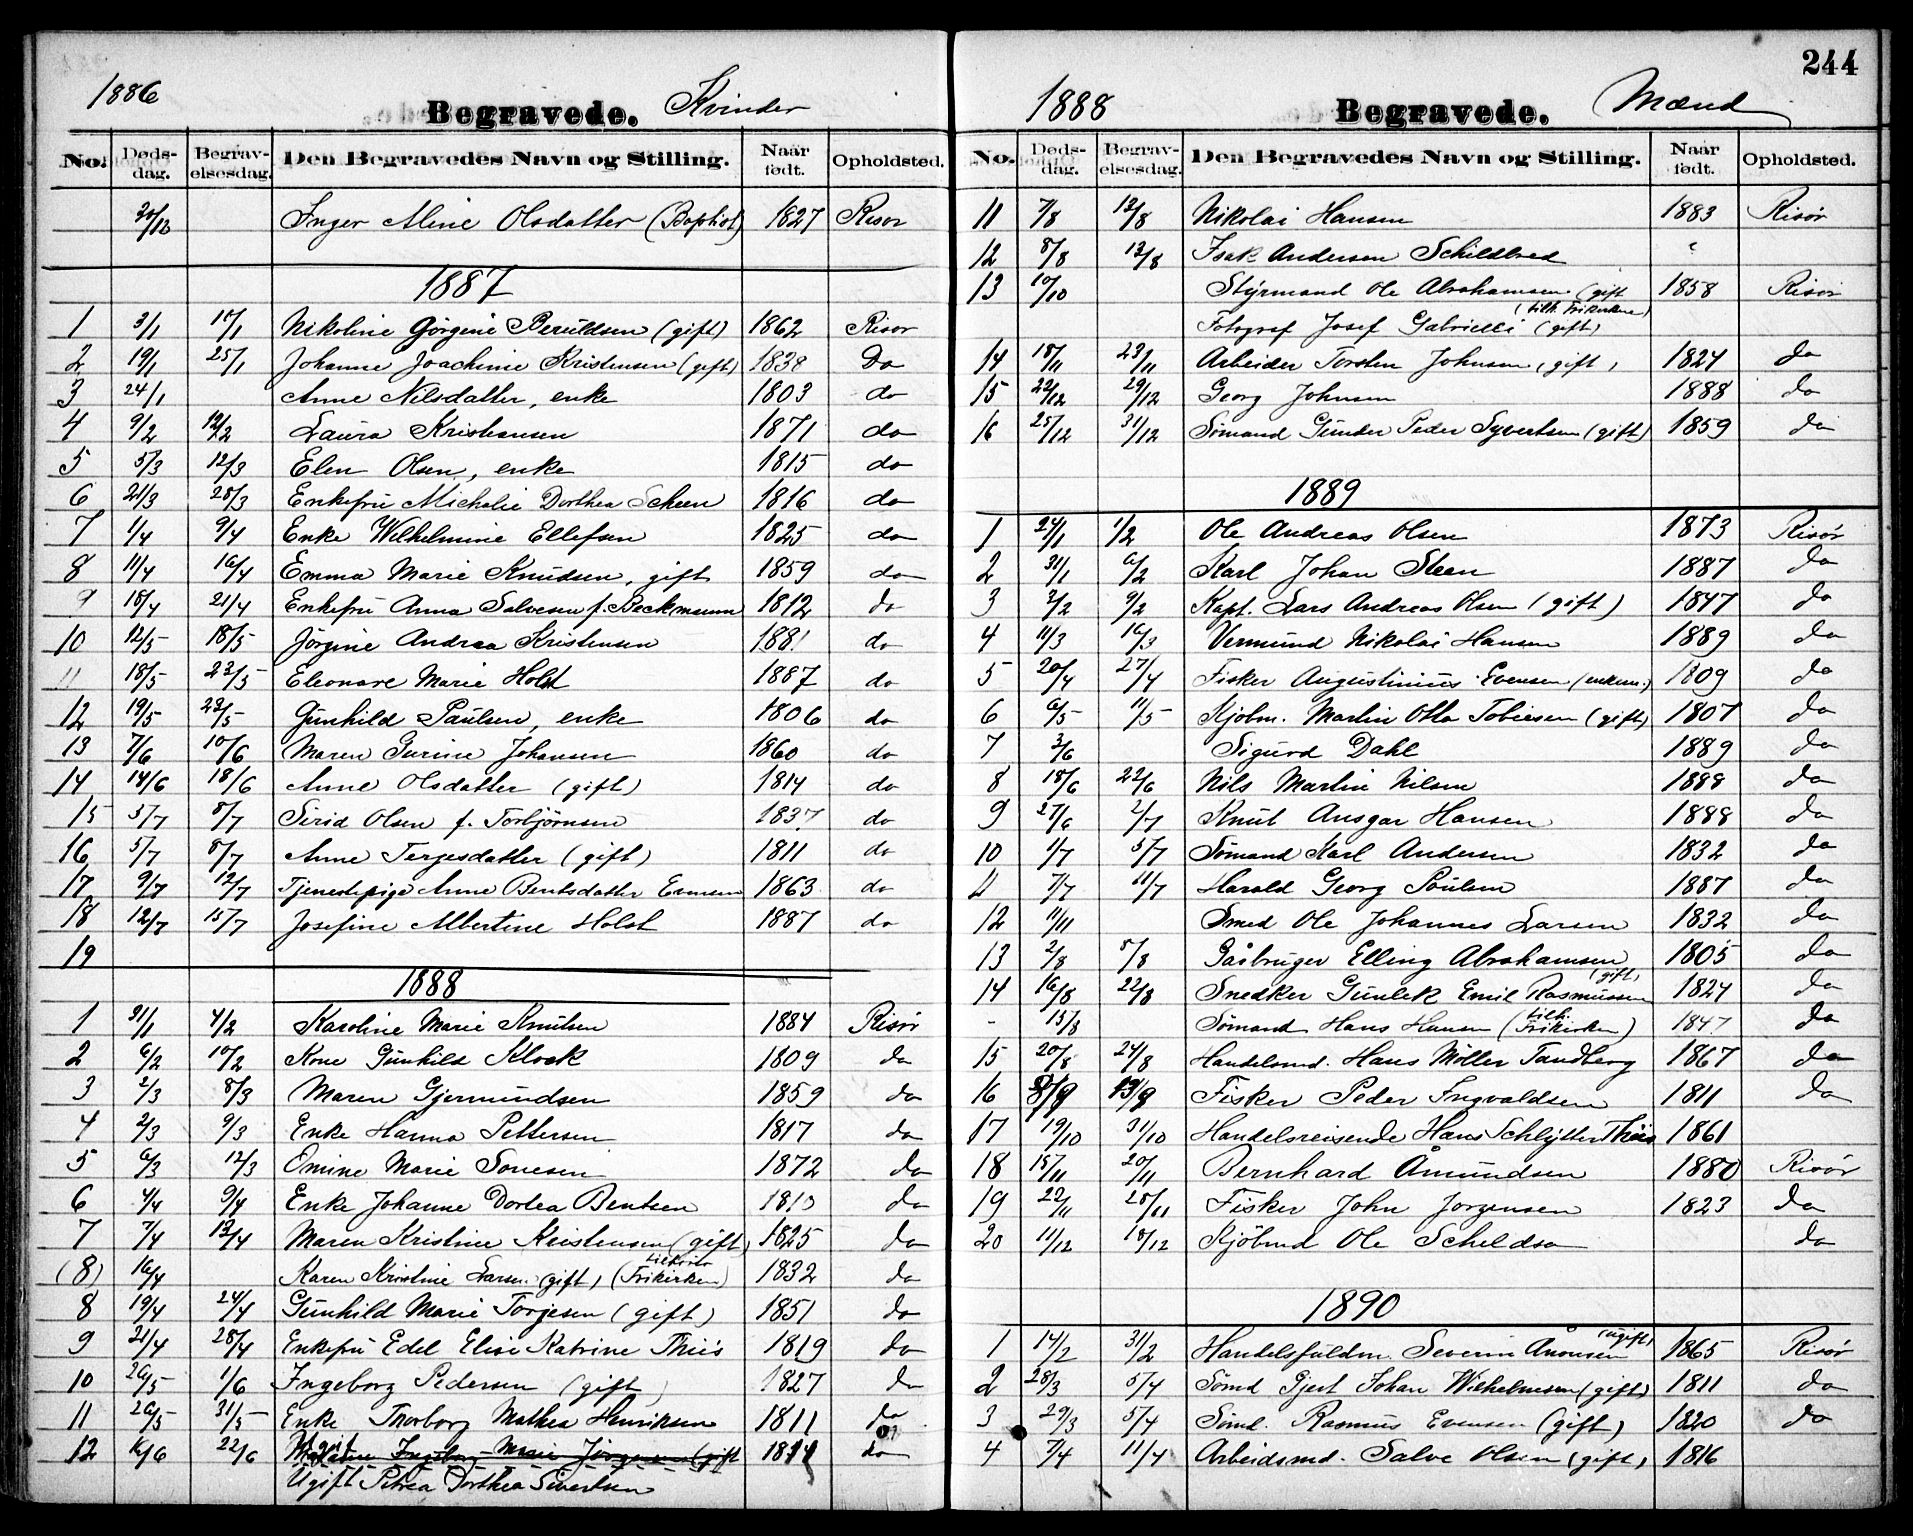 244
1886
Begravede. Kvinder
No. Døds-dag. Begrav-elsesdag. Den Begravedes Navn og Stilling. Naar født. Opholdsted.
30/12 Inger Aline Olsdatter (Baptist) 1827 Risør
1887
1 3/1 17/1 Nikoline Gørgine (gift) 1862 Risør
2 19/1 25/1 Johanne Joachime Kristensen (gift) 1838 Do
3 24/1 Anne Nilsdatter, enke 1803 do
4 9/2 12/2 Laura Kristiansen 1871 do
5 5/3 12/3 Elen Olsen, enke 1815 do
6 21/3 28/3 Enkefru Michalie Dorthea Scheen 1816 do
7 1/4 9/4 Enke Wilhelmine Ellefsen 1825 do
8 11/4 16/4 Emma Marie Knudsen, gift 1859 do
9 18/4 21/4 Enkefru Anna Salvesen f. Beckmann 1812 do
10 12/5 18/5 Jørgine Andrea Kristensen 1881 do
11 18/5 23/5 Eleonare Marie Holst 1887 do
12 19/5 23/5 Gunhild Paulsen, enke 1806 do
13 7/6 10/6 Maren Gurine Johansen 1860 do
14 14/6 18/6 Anne Olsdatter (gift) 1814 do
15 5/7 8/7 Sirid Olsen f. Torbjørnsen 1837 do
16 5/7 8/7 Anne Terjesdatter (gift) 1811 do
17 9/7 12/7 Tjenestepige Anne Bentsdatter Evensen 1863 do
18 12/7 15/7 Josefine Albertine Holst 1887 do
19
1888
1 31/1 4/2 Karoline Marie Knutsen 1884 Risør
2 6/2 10/2 Kone Gunhild Klock 1809 do
3 2/3 8/3 Maren Gjermundsen 1859 do
4 2/3 9/3 Enke Hanna Pettersen 1817 do
5 6/3 12/3 Omine Marie Tonesen 1872 do
6 4/4 9/4 Enke Johanne Dortea Bentsen 1813 do
7 7/4 13/4 Maren Kristine Kristensen (gift) 1825 do
(8) 16/4 Karen Kristine Larsen (gift) (Frikirken) 1832 do
8 19/4 24/4 Gunhild Marie Torjesen (gift) 1851 do
9 21/4 28/4 Enkefru Edel Elise Katrine Thiis 1819 do
10 26/5 1/6 Ingeborg Pedersen (gift) 1827 do
11 26/5 31/5 Enke Thorborg Mathea Henriksen 1811 do
12 16/6 22/6 Ingeborg Marie Jörgensen (gift 1814 do
Ugift Petrea Dorthea Sivertsen
1888
Begravede. Mænd
No. Døds-dag. Begrav-elsesdag. Den Begravedes Navn og Stilling. Naar født. Opholdsted.
11 7/8 12/8 Nikolai Hansen 1883 Risør
12 8/8 13/8 Isak Andersen Schildbred "
13 10/10 Styrmand Ole Abrahamsen (gift 1858 Risør
(tilh. Frikirken)
Fotograf Josef Gabrielli (gift)
14 18/11 23/11 Arbeider Torsten Johnsen (gift) 1824 do
15 22/12 29/12 Georg Johnsen 1888 do
16 25/12 31/12 Sømand Gunder Peder Syvertsen (gift) 1859 do
1889
1 24/1 1/2 Ole Andreas Olsen 1873 Risør
2 31/1 6/2 Karl Johan Steen 1887 do
3 3/2 9/2 Kapt. Lars Andreas Olsen (gift) 1847 do
4 11/3 16/3 Vermund Nikolai Hansen 1889 do
5 20/4 27/4 Fisker Augustinius Evensen (enkem.) 1809 do
6 6/5 11/5 Kjøbm. Martin Otto Tobiesen (gift) 1807 do
7 3/6 Sigurd Dahl 1889 do
8 18/6 22/6 Nils Martin Nilsen 1888 do
9 27/6 2/7 Knut Ansgar Hansen 1888 do
10 1/7 5/7 Sømand Karl Andersen 1832 do
11 7/7 11/7 Harald Georg Poulsen 1887 do
12 11/11 Smed Ole Johannes Larsen 1832 do
13 2/8 8/8 Gårbruger Elling Abrahamsen 1805 do
(gift)
14 16/8 22/8 Snedker Gunlek Emil Rasmussen 1824 do
- 15/8 Sømand Hans Hansen (tilh. Frikirken) 1847 do
15 20/8 24/8 Handelsmd. Hans Møller Tandberg 1867 do
16 8/9 13/9 Fisker Peder Ingvaldsen 1811 do
17 19/10 31/10 Handelsreisende Hans Schlytter Thiis 1861
18 15/11 20/11 Bernhard Åmundsen 1880 Risør
19 22/11 28/11 Fisker John Jorgensen 1823 do
20 11/12 18/12 Kjöbmd Ole Scheldsø do
1890
1 14/2 31/2 Handelsfuldm. Severin Anonsen (ugift) 1865 Risør
2 28/3 5/4 Sømd Gjert Johan Wilhelmsen (gift) 1811 do
3 29/3 5/4 Sømd. Rasmus Evensen (gift) 1820 do
4 7/4 11/4 Arbeidsmd. Salve Olsen (gift) 1816